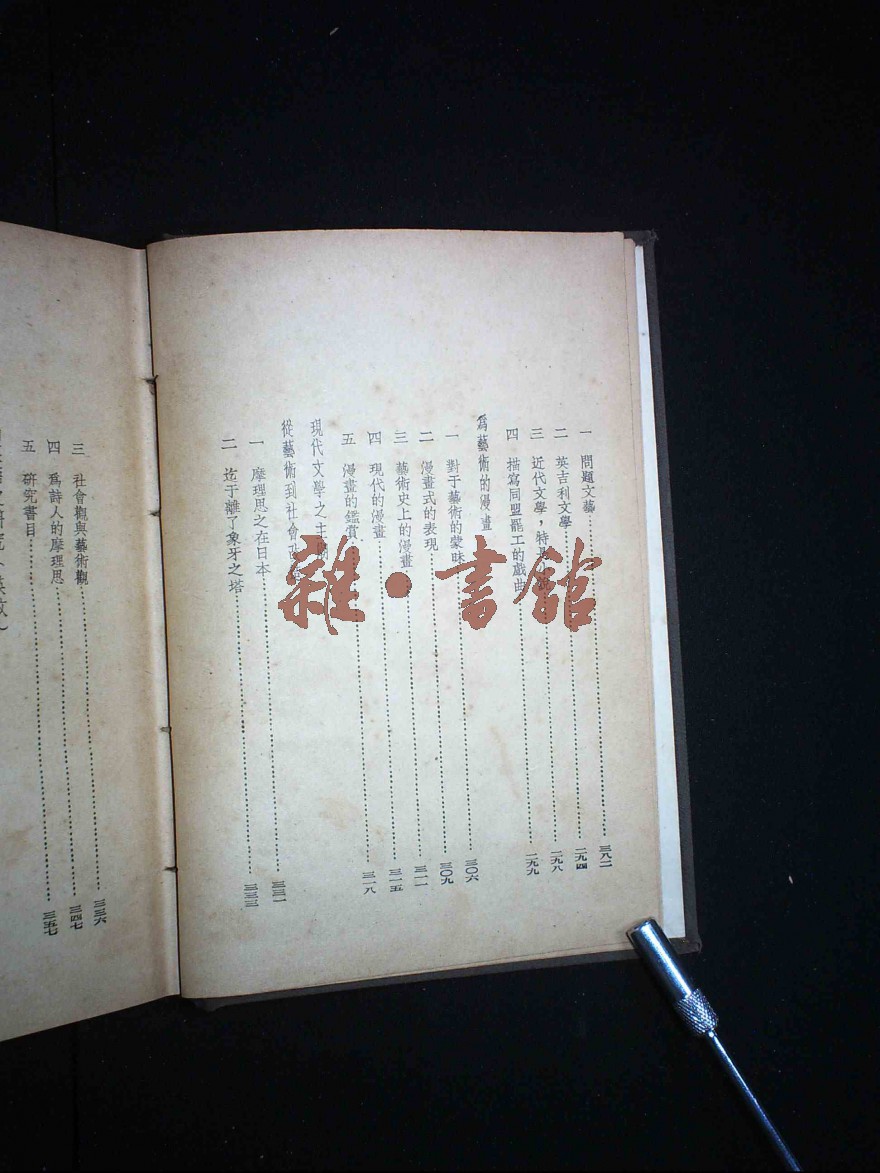 一 問題文藝……三八二
二 英吉利文學……二九四
三 近代文學，特是……二九八
四 描寫同盟罷工的戲曲……二九九
爲藝術的漫畫
一 對于藝術的蒙昧……三〇六
二 漫畫式的表現……三〇九
三 藝術史上的漫畫……三一一
四 現代的漫畫……三一五
五 漫畫的鑑賞……三一八
現代文學之主
從藝術到社會改
一 摩理思之在日本……三三一
二 迄于離了象牙之塔……三三三
三 社會觀與藝術觀……三三六
四 爲詩人的摩理思……三四七
五 研究書目……三五七
雜·書館